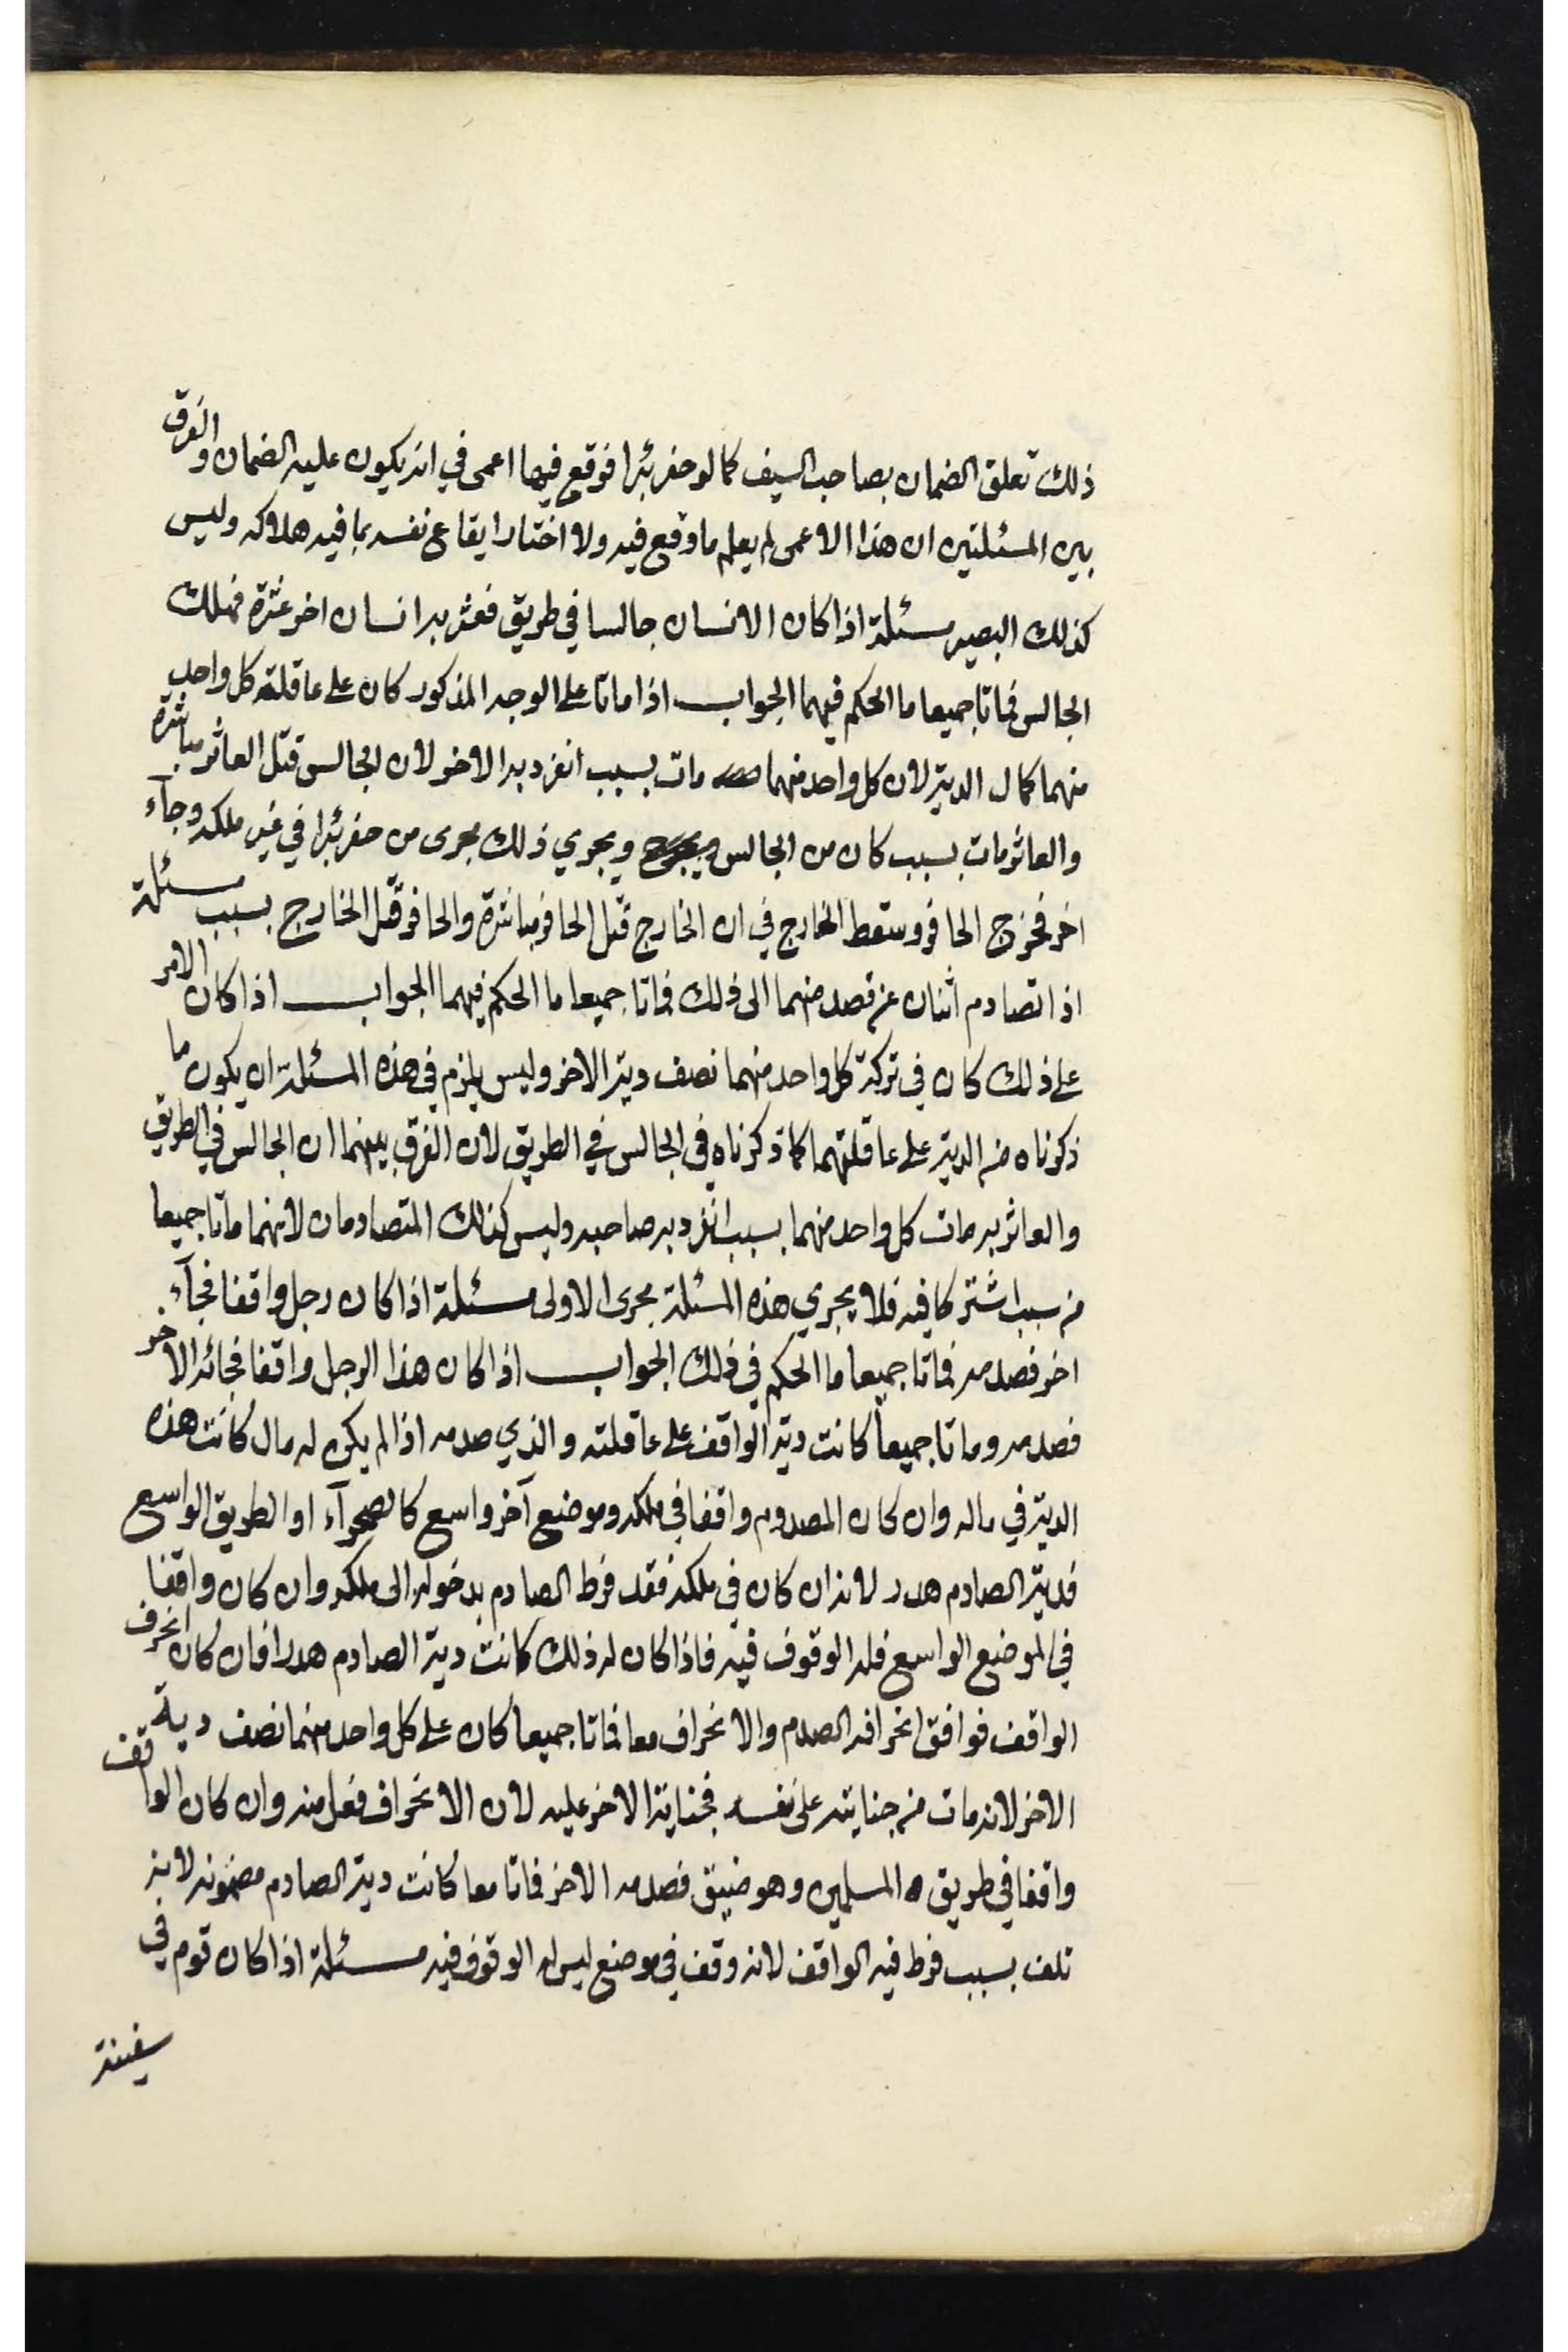 ذلك تعلق الضمان بصاحب السيف كما لو حفر بئرا فوقع فيها اعمى في انه يكون عليه الضمان والفرق
بين المسئلتين ان هذا الاعمى لم يعلم ما وقع فيه ولا اختار ايقاع نفسه بما فيه هلاكه وليس
كذلك البصير مسئلة اذا كان الانسان جالسا في طريق فعثر به انسان اخر عثرة فهلك
الجالس فماتا جميعا ما الحكم فيهما الجواب اذا ماتا على الوجه المذكور كان على عاقلة كل واحد
منهما كمال الدية لان كل واحد منهما مات بسبب انفرد به الاخر لان الجالس قتل العاثر مباشرة
والعاثر مات بسبب كان من الجالس ويجري ذلك مجرى من حفر بئرا في غير ملكه وجآء
اخر فخرج الحافر وسقط الخارج في ان الخارج قتل الحافر مباشرة والحافر قتل الخارج بسبب مسئلة
اذا تصادم اثنان عن قصد منهما الى ذلك فماتا جميعا ما الحكم فيهما الجواب اذا كان الامر
على ذلك كان في تركة كل واحد منهما نصف دية الاخر وليس يلزم في هذه المسئلة ان يكون ما
ذكرناه من الدية على عاقلتهما كما ذكرناه في الجالس في الطريق لان الفرق بينهما ان الجالس في الطريق
والعاثر به مات كل واحد منهما بسبب انفرد به صاحبه وليس كذلك المتصادمان لانهما ماتا جميعا
من سبب اشتركا فيه فلا يجري هذه المسئلة مجرى الاولى مسئلة اذا كان رجل واقفا فجآء
اخر فصدمه فماتا جميعا ما الحكم في ذلك الجواب اذا كان هذا الرجل واقفا فجائه الاخر
فصدمه وماتا جميعاً كانت دية الواقف على عاقلته والذي صدمه اذا لم يكن له مال كانت هذه
الدية في ماله وان كان المصدوم واقفا في ملكه وموضع آخر واسع كالصحرآء او الطريق الواسع
فدية الصادم هدر لانه ان كان في ملكه فقد فرط الصادم بدخوله الى ملكه وان كان واقفا
في الموضع الواسع فله الوقوف فيه فاذا كان له ذلك كانت دية الصادم هدرا فان كان انحرف
الواقف فوافق انحرافه الصدم والانحراف معا فماتا جميعا كان على كل واحد منهما نصف دية
الاخر لانه مات من جنايته على نفسه فجناية الاخر عليه لان الانحراف فعل منه وان كان الواقف
واقفا في طريق المسلمين وهو ضيق فصدمه الاخر فماتا معا كانت دية الصادم مضمونه لانه
تلف بسبب فرط فيه الواقف لانه وقف في موضع ليس له الوقوف فيه مسئلة اذا كان قوم في
سفينة